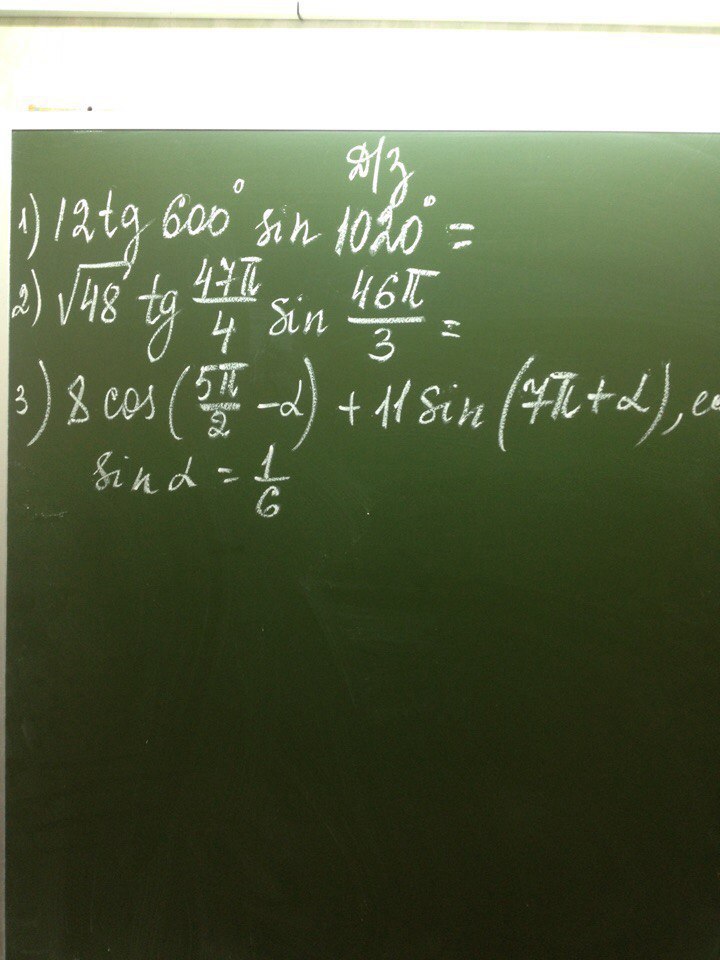 Д/з
1) 12 tg 600° sin 1020° =
2) √48 tg 47π/4 sin 46π/3 =
3) 8 cos(5π/2 - α) + 11 sin(7π + α),
sin α = 1/6